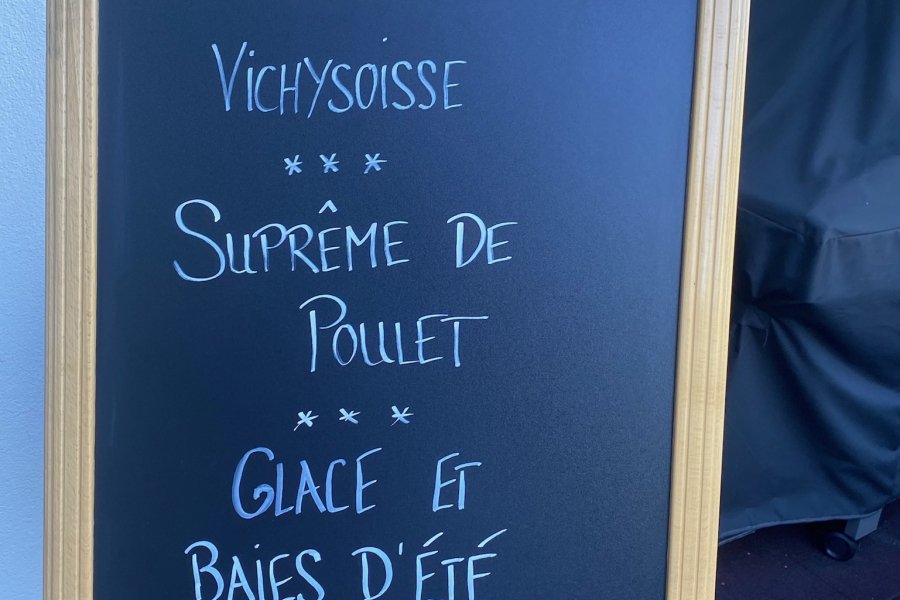 VICHYSOISSE
* * *
SUPRÊME DE
POULET
* * *
GLACE ET
BAIES D'ÉTÉ